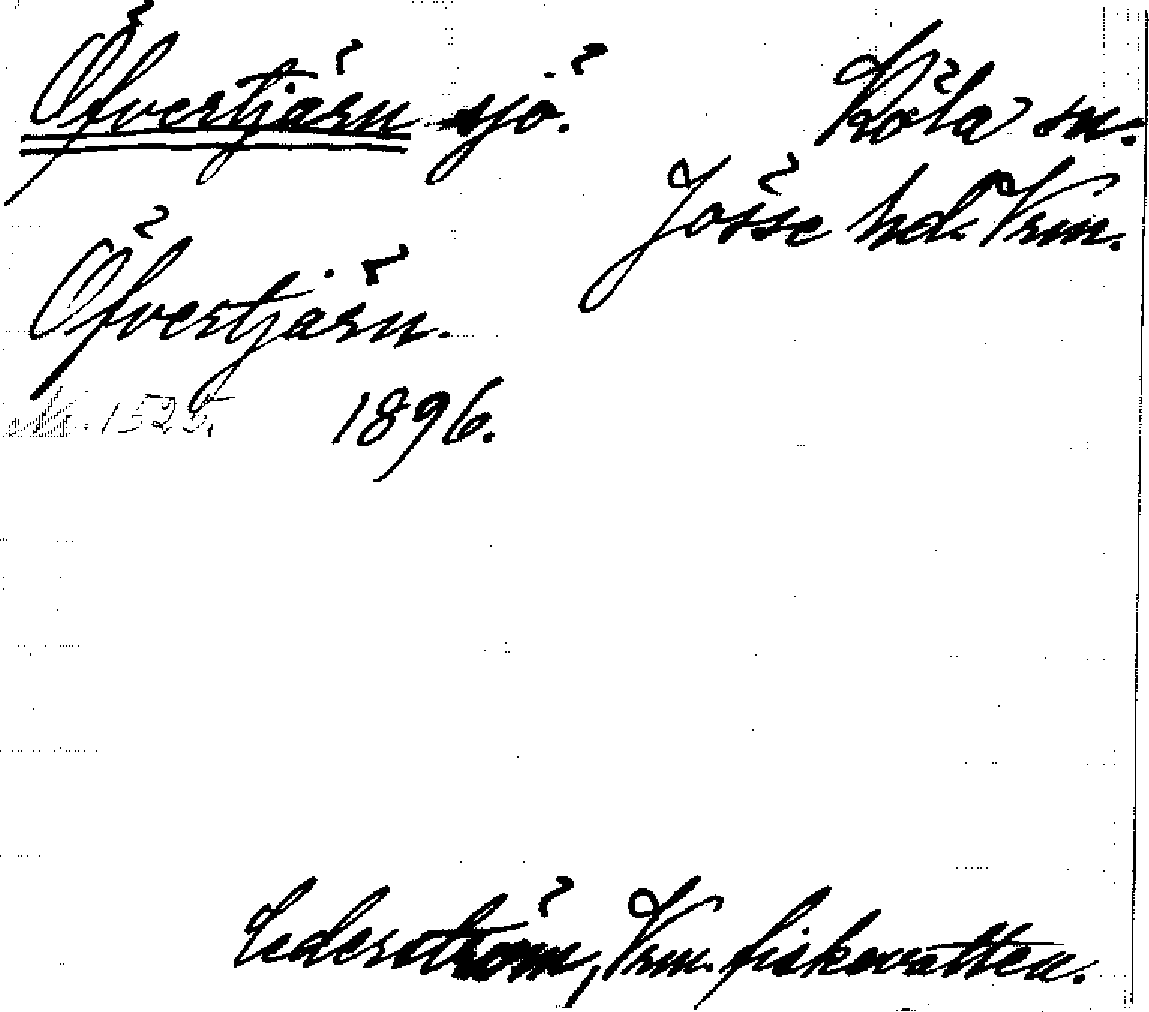 Öfvertjärn sjö.
Köla sn.
Jösse hd. Vrm.
Öfvertjärn.
Nr. 1525. 1896.
Cederström, Vrm. fiskevatten.